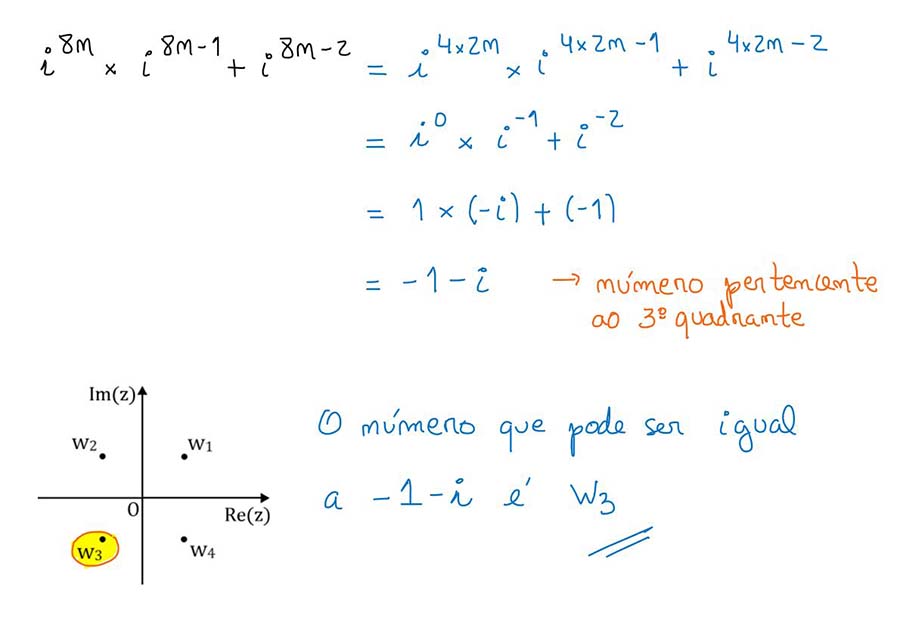 i^8n × i^8n-1 + i^8n-2 = i^4×2n × i^4×2n-1 + i^4×2n-2
= i^0 × i^-1 + i^-2
= 1 × (-i) + (-1)
= -1 - i → número pertencente
ao 3º quadrante
Im(z)
W2 W1
O
Re(z)
W3 W4
O número que pode ser igual
a -1-i é W3